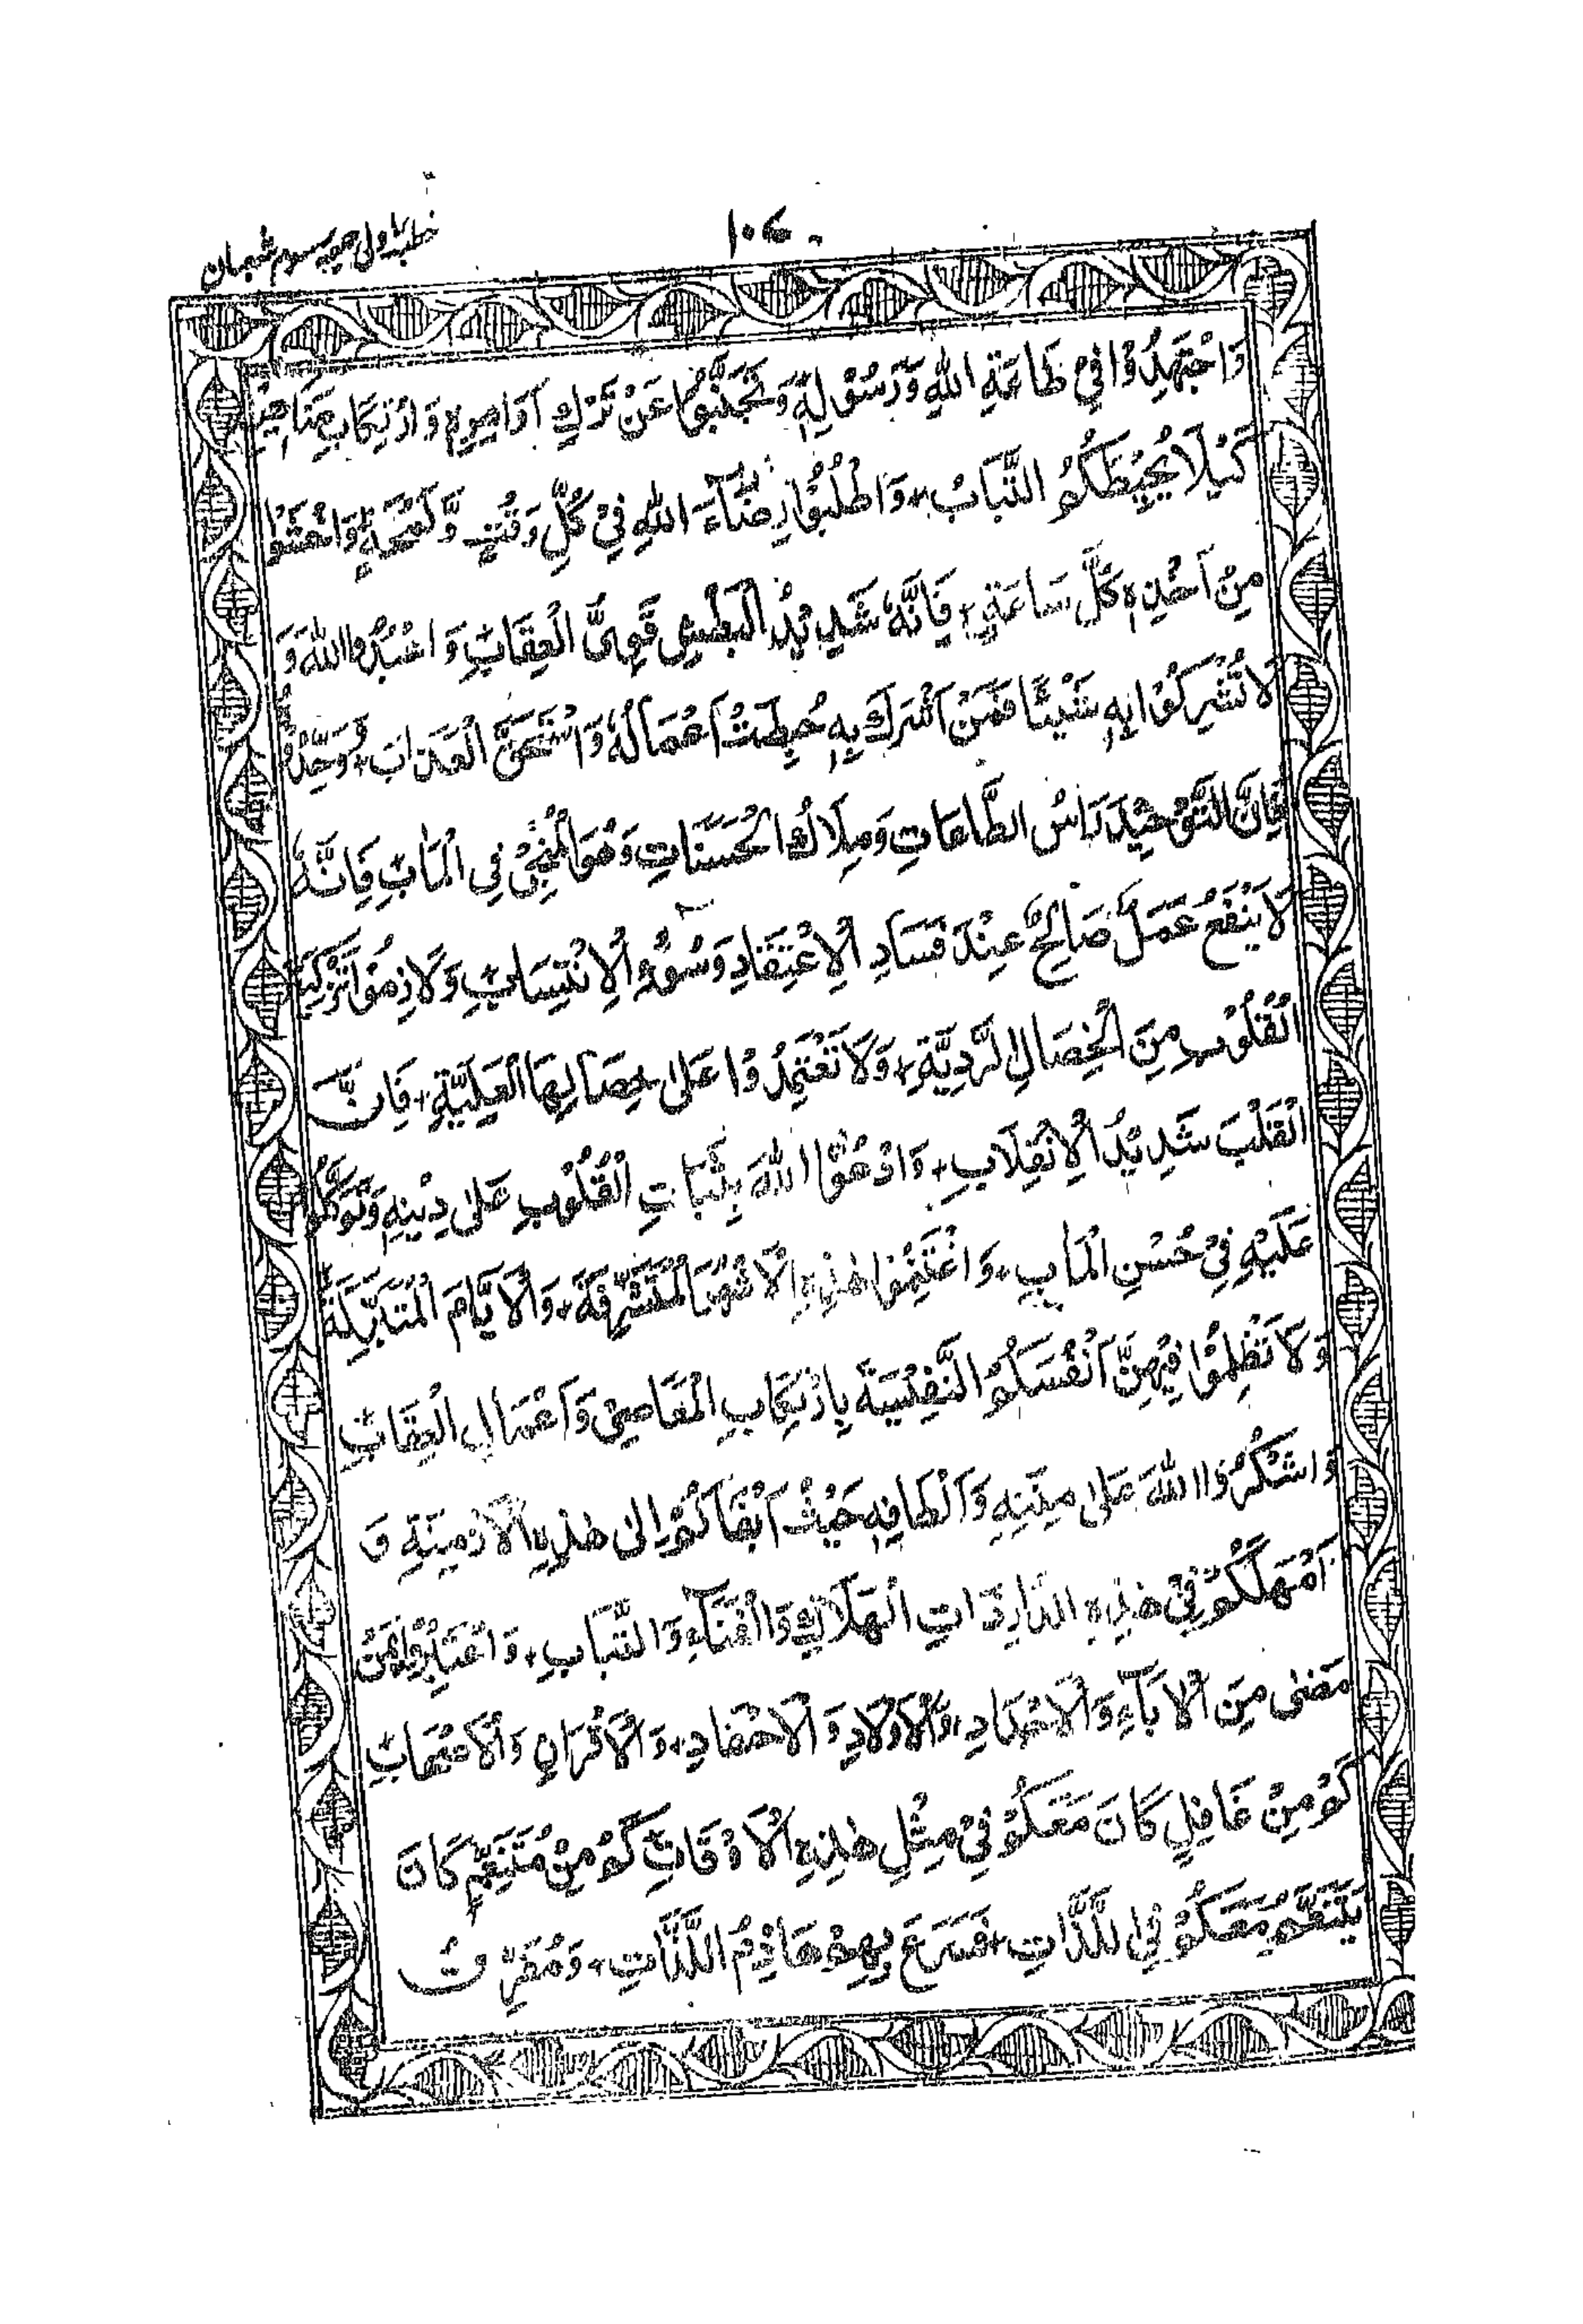 خطبۂ اولی جمعہ سوم شعبان
۱۰۷
وَاجْتَهِدُوْا فِيْ طَاعَةِ اللهِ وَرَسُوْلِهٖ وَتَجَنَّبُوْا عَنْ تَرْكِ اَوَامِرِهٖ وَارْتِكَابِ مَنَاهِيْهِ
كَيْلَا يُحِيْطَكُمُ التَّبَابُ + وَاطْلُبُوْا رِضَآءَ اللهِ فِيْ كُلِّ وَقْتٍ وَّلَمْحَةٍ وَاخْشَوْا
مِنْ اَخْذِهٖ كُلَّ سَاعَةٍ + فَاِنَّهٗ شَدِيْدُ الْبَطْشِ قَوِيُّ الْعِقَابِ وَاعْبُدُوا اللهَ وَ
لَا تُشْرِكُوْا بِهٖ شَيْئًا فَمَنْ اَشْرَكَ بِهٖ حُبِطَتْ اَعْمَالُهٗ وَاسْتَحَقَّ الْعَذَابَ + وَحِّدُوْهُ
فَاِنَّ التَّوْحِيْدَ رَاْسُ الطَّاعَاتِ وَمِلَاكُ الْحَسَنَاتِ وَهُوَ الْمُنْجِيْ فِي الْمَاٰبِ فَاِنَّهٗ
لَا يَنْفَعُ عَمَلٌ صَالِحٌ عِنْدَ فَسَادِ الْاِعْتِقَادِ وَسُوْٓءِ الْاِنْتِسَابِ وَلَازِمُوْا تَزْكِيَةَ
الْقُلُوْبِ مِنَ الْخِصَالِ الرَّدِيَّةِ + وَلَا تَعْتَمِدُوْا عَلٰى خِصَالِهَا الْعَلِيَّةِ + فَاِنَّ
الْقَلْبَ شَدِيْدُ الْاِنْقِلَابِ + وَادْعُوا اللهَ بِثَبَاتِ الْقُلُوْبِ عَلٰى دِيْنِهٖ وَتَوَكَّلُوْا
عَلَيْهِ فِيْ حُسْنِ الْمَاٰبِ + وَاغْتَنِمُوْا هٰذِهِ الْاَشْهُرَ الْمُتَشَرِّفَةَ + وَالْاَيَّامَ الْمُتَبَرِّكَةَ
وَلَا تَظْلِمُوْا فِيْهِنَّ اَنْفُسَكُمُ النَّفِيْسَةَ بِارْتِكَابِ الْمَعَاصِيْ وَاَعْمَالِ الْعِقَابِ
وَاشْكُرُوا اللهَ عَلٰى مِنَنِهٖ وَاَلْطَافِهٖ حَيْثُ اَبْقَاكُمْ اِلٰى هٰذِهِ الْاَزْمِنَةِ وَ
اَمْهَلَكُمْ فِيْ هٰذِهِ الدَّارِ ذَاتِ الْهَلَاكِ وَالْفَنَآءِ وَالتَّبَابِ + وَاعْتَبِرُوْا بِمَنْ
مَضٰى مِنَ الْاٰبَآءِ وَالْاَجْدَادِ + وَالْاَوْلَادِ وَالْاَحْفَادِ + وَالْاَقْرَانِ وَالْاَصْحَابِ
كَمْ مِنْ غَافِلٍ كَانَ مَعَكُمْ فِيْ مِثْلِ هٰذِهِ الْاَوْقَاتِ كَمْ مِنْ مُتَنَعِّمٍ كَانَ
يَتَنَعَّمُ مَعَكُمْ فِي اللَّذَّاتِ + فَسَرَعَ بِهِمْ هَاذِمُ اللَّذَّاتِ + وَمُفَرِّقُ